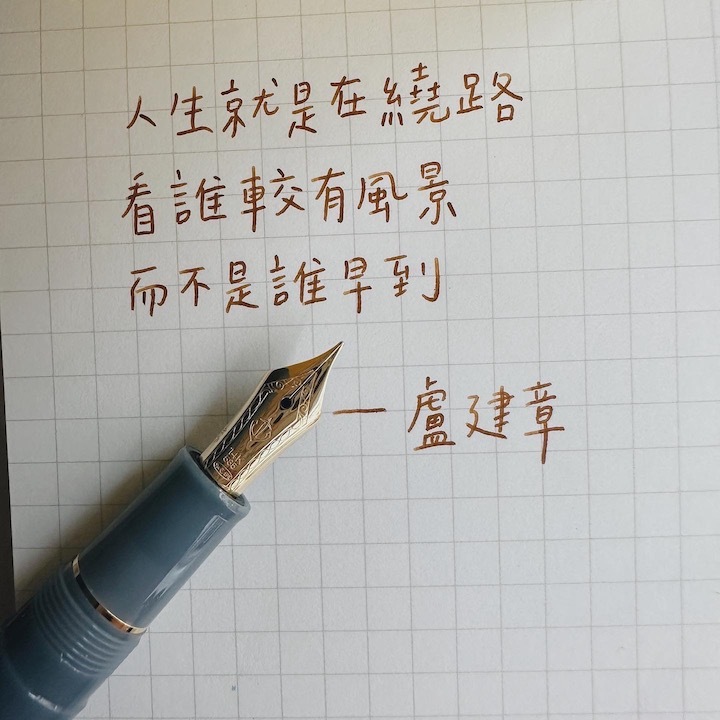 人生就是在繞路
看誰較有風景
而不是誰早到
— 盧建章